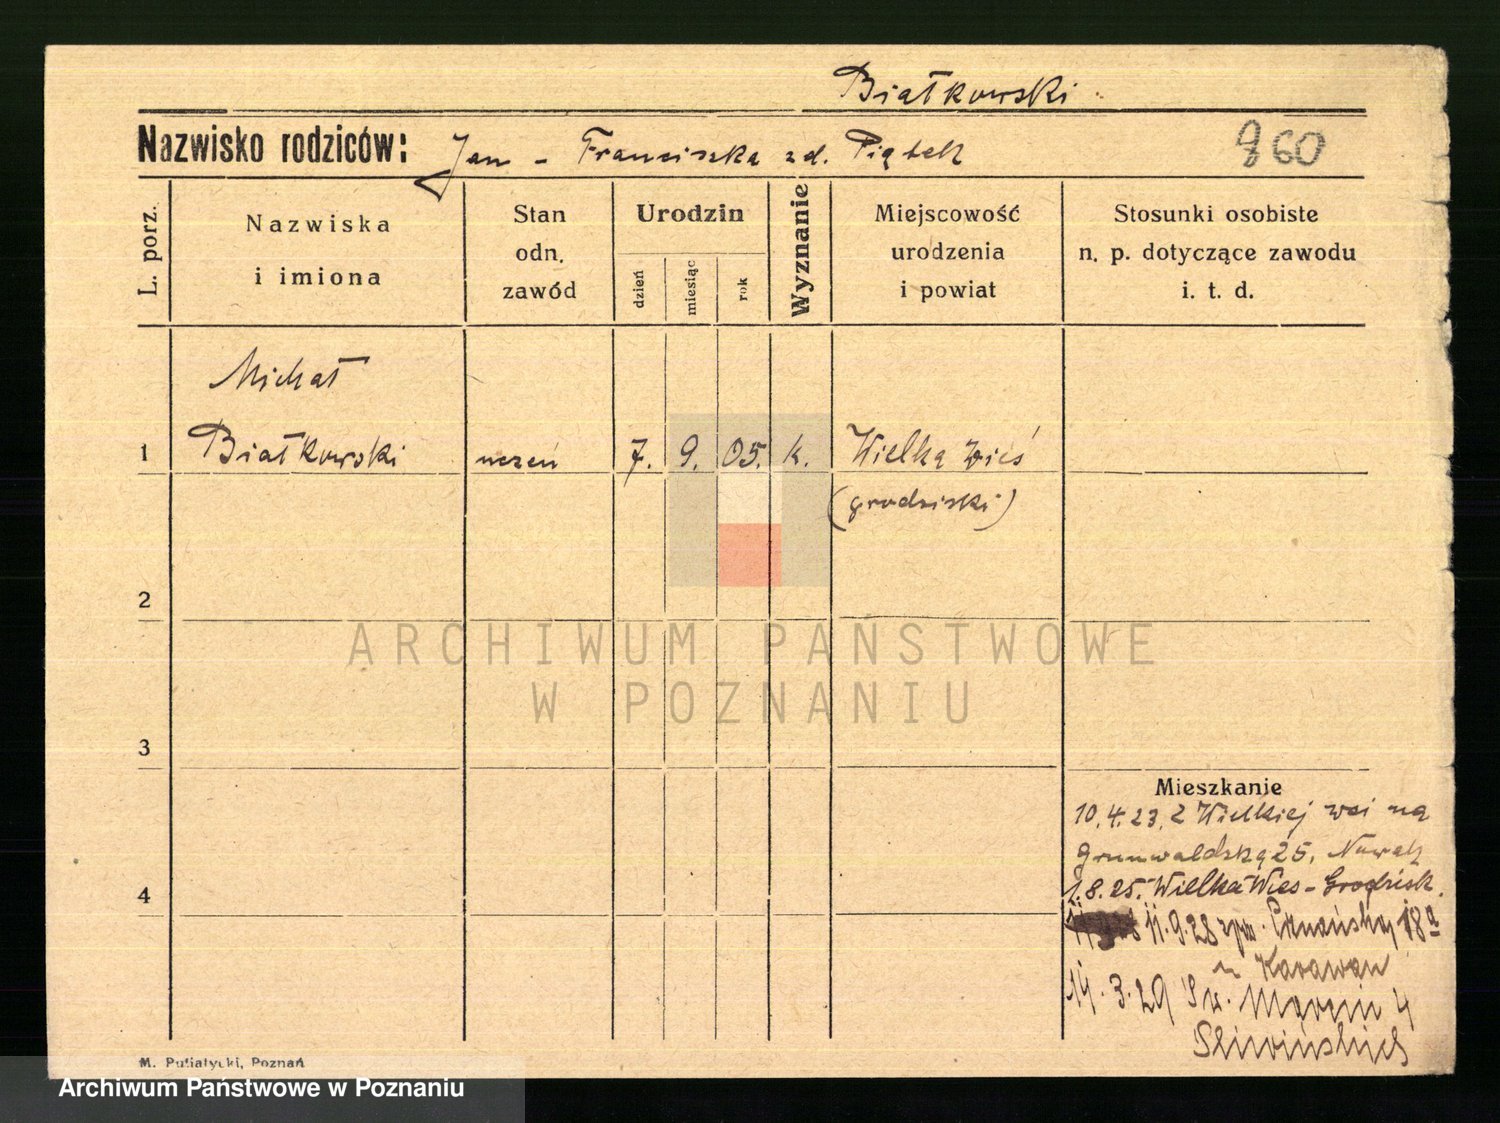 Białkowski
Nazwisko rodziców: Jan - Franciszka zd. Piątek
860
L. porz.
Nazwiska
i imiona
Stan
odn.
zawód
Urodzin
dzień
miesiąc
rok
Wyznanie
Miejscowość
urodzenia
i powiat
Stosunki osobiste
n. p. dotyczące zawodu
i. t. d.
Michał
1 Białkowski uczeń 7. 9. 05. k. Wielka Wieś
(grodziski)
2
ARCHIWUM PAŃSTWOWE
W POZNANIU
3
Mieszkanie
10.4.23, z Wielkiej wsi na
Grunwaldzką 25, Nowak
4
1.8.25. Wielka Wieś - Grodzisk.
11.9.28 18a
u Karawan
14.3.29 Św. Marcin 4
Śliwińskich
M. Putiatycki, Poznań
Archiwum Państwowe w Poznaniu